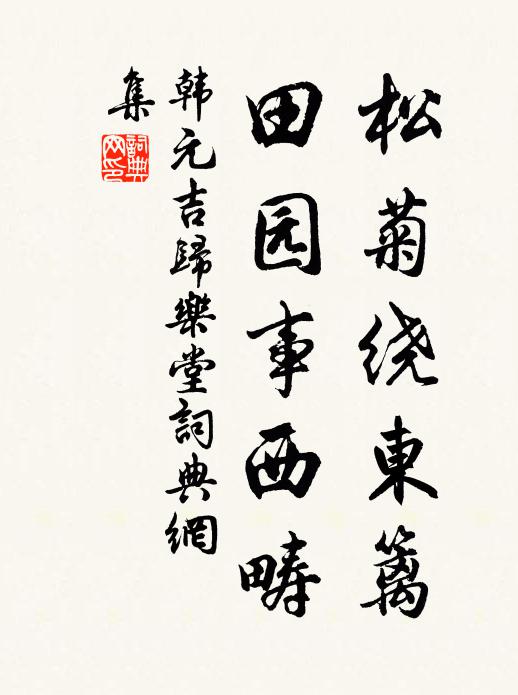 松菊绕東篱
田园事西畴
韩元吉歸樂堂詞典網
集
詞典
网印